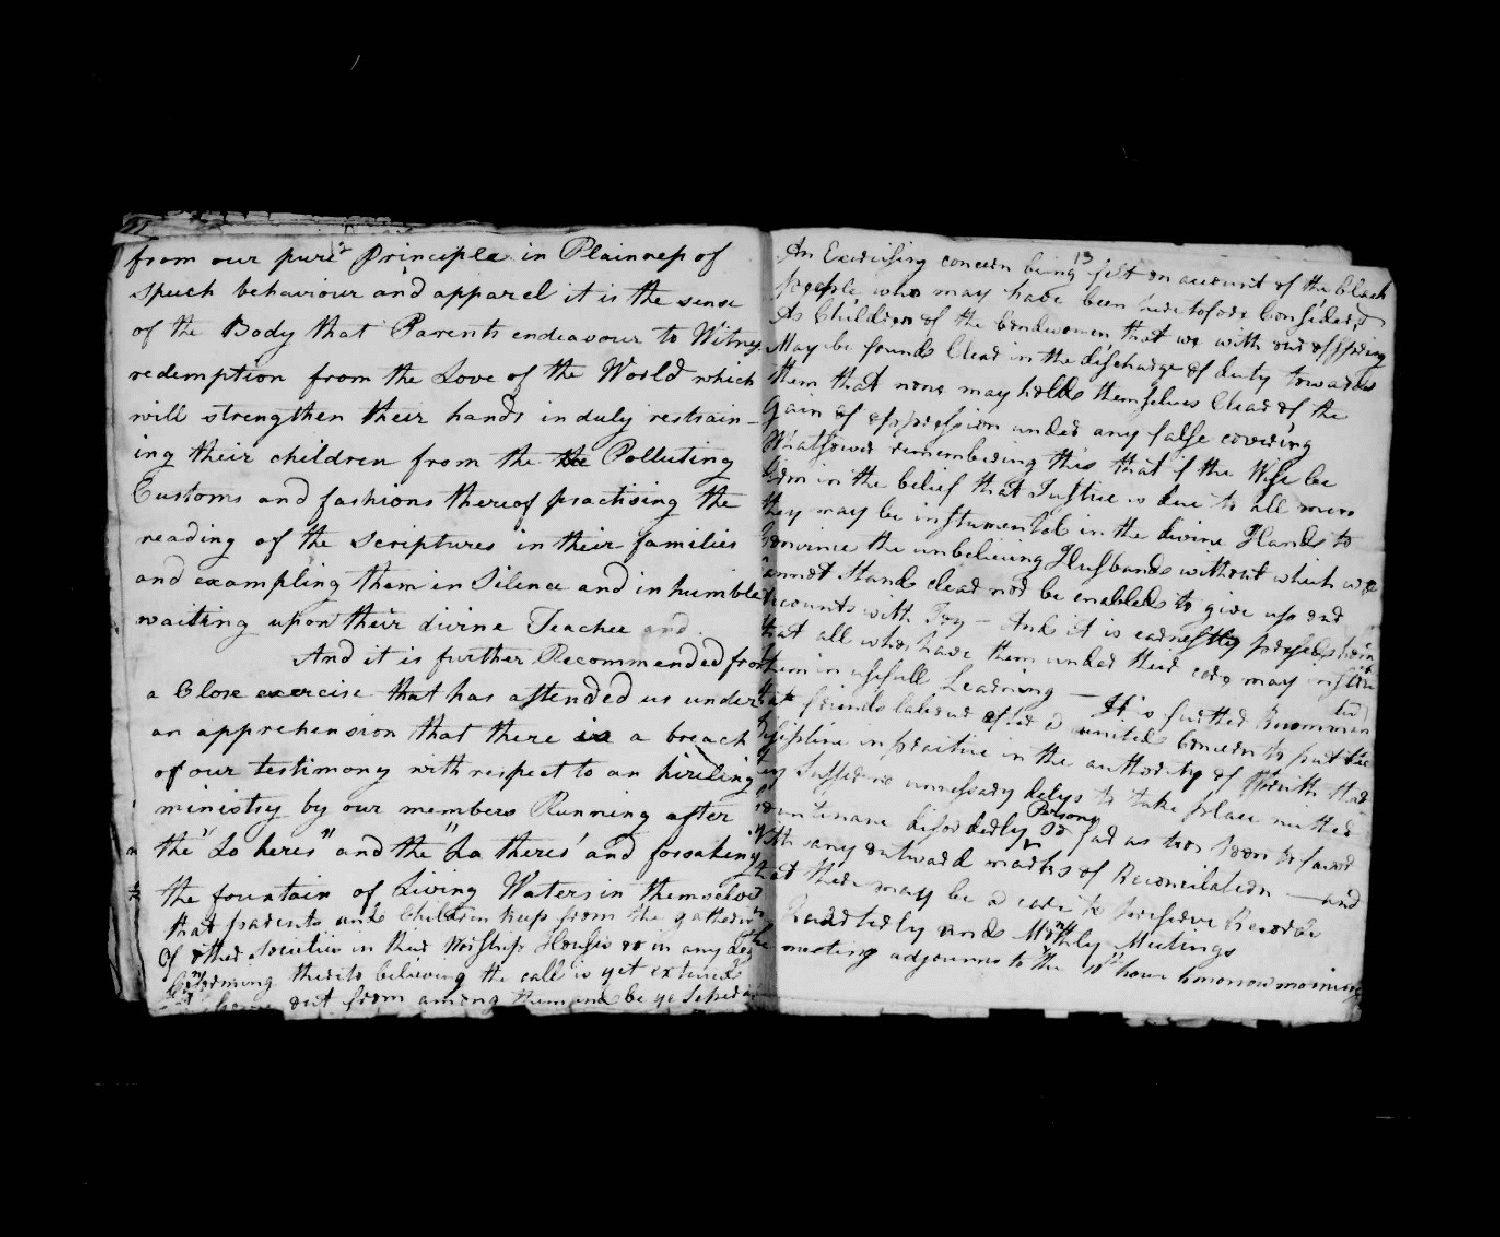 12
from our pure Principle in Plainness of
speech behaviour and apparel it is the sense
of the Body that Parents endeavour to Witness
redemption from the Love of the World which
will strengthen their hands in duly restrain-
ing their children from the the Polluting
Customs and fashions thereof practising the
reading of the scriptures in their families
and exampling them in Silence and in humble
waiting upon their divine Teacher and
And it is further Recommended from
a Close exercise that has attended us under
an apprehension that there is a breach
of our testimony with respect to an hireling
ministry by our members Running after
the "Lo heres" and the "Lo theres" and forsaking
the fountain of Living Waters in themselves
that parents and Children keep from the gatherings
of other societies in their Worship Houses or in any
Conforming thereto believing the call is yet extended
out from among them and be ye seperate
13
An Exercising concern being felt on account of the black
people who may have been heretofore Considered
As Children of the bondwoman, that we with our offspring
May be found Clear in the discharge of duty towards
them that none may hold themselves Clear of the
Gain of oppression under any false covering
Whatsoever remembering this that if the Wife be
firm in the belief that Justice is due to all men
they may be instumental in the divine Hands to
convince the unbelieving Husbands without which we
cannot Stand clear nor be enabled to give up our
accounts with Joy - And it is earnestly
that all who have them under their care may
them in usefull Learning — It is further Recommen
that friends labour after a united Concern to put the
discipline in practice in the authority of Truth that
any Sufferine unnessary delys to take place
countinanc disorderly Persons or
with any outward marks of Reconcilation — and
that there may be a care to preserve Records
and Monthly Meetings
the meeting adjourns to the 10th hour tomorrow morning